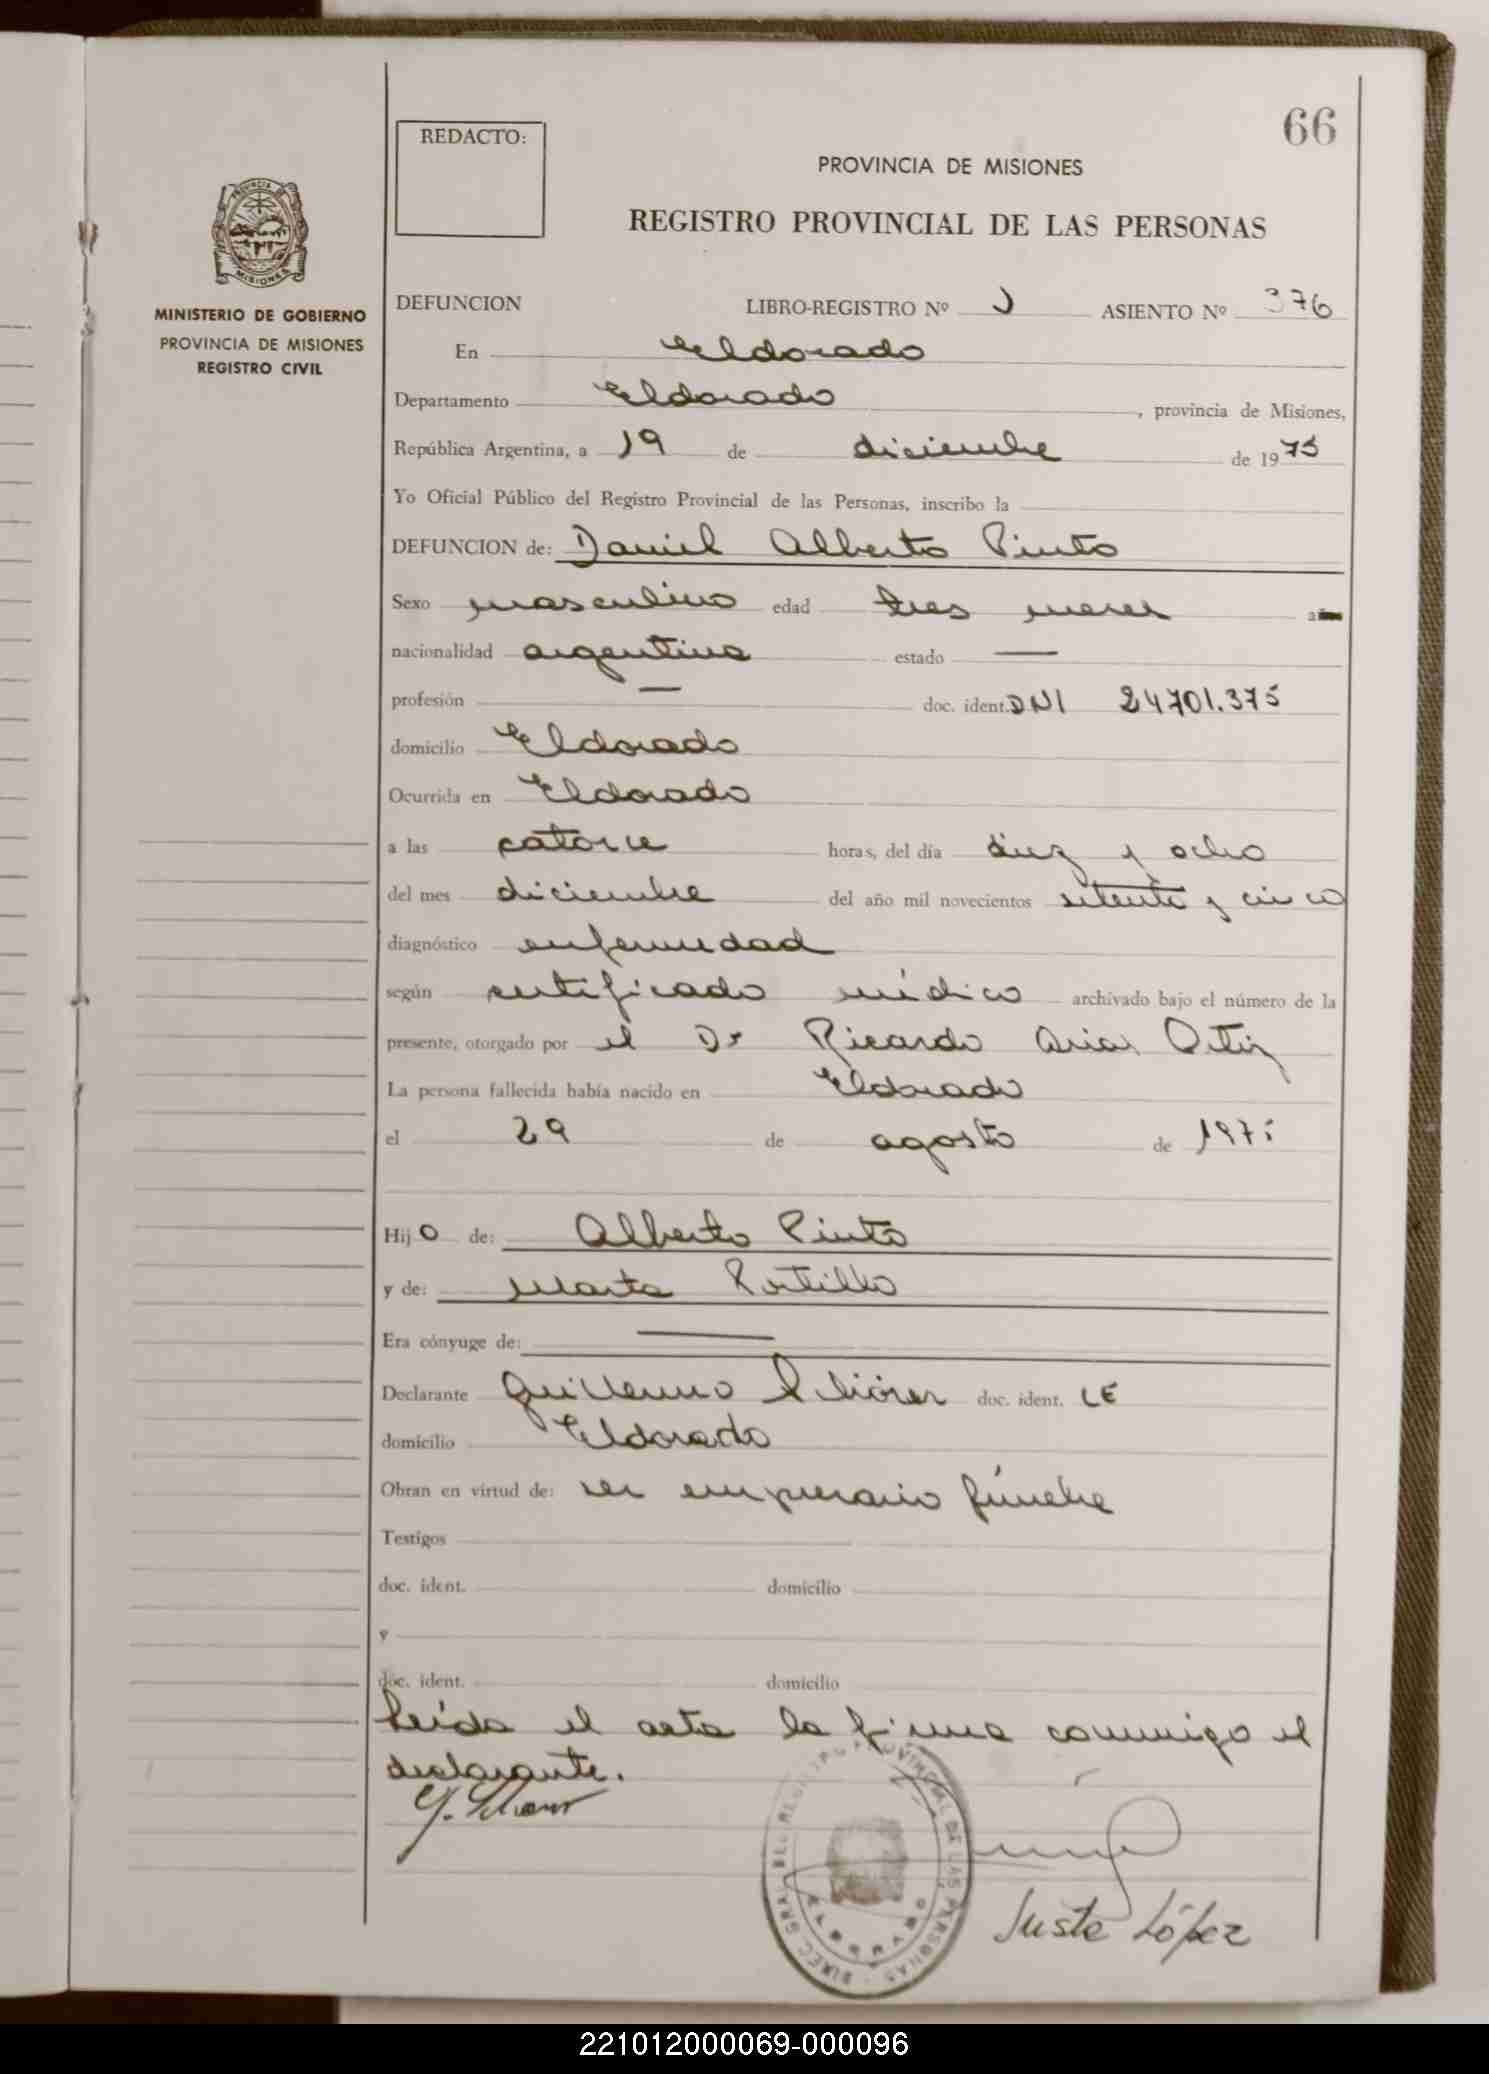 66
REDACTO:
PROVINCIA DE MISIONES
REGISTRO PROVINCIAL DE LAS PERSONAS
MINISTERIO DE GOBIERNO
PROVINCIA DE MISIONES
REGISTRO CIVIL
DEFUNCION LIBRO-REGISTRO Nº ASIENTO Nº 376
En Eldorado
Departamento Eldorado, provincia de Misiones,
República Argentina, a 19 de diciembre de 1975
Yo Oficial Público del Registro Provincial de las Personas, inscribo la
DEFUNCION de: Daniel Alberto Pinto
Sexo masculino edad tres meses
nacionalidad argentina estado —
profesión — doc. ident. DNI 24701.375
domicilio Eldorado
Ocurrida en Eldorado
a las catorce horas, del día diez y ocho
del mes diciembre del año mil novecientos setenta y cinco
diagnóstico enfermedad
según certificado médico archivado bajo el número de la
presente, otorgado por el Dr Ricardo Arias Ortiz
La persona fallecida había nacido en Eldorado
el 29 de agosto de
Hijo de: Alberto Pinto
y de: Marta Portillo
Era cónyuge de: —
Declarante Guillermo doc. ident. LE
domicilio Eldorado
Obran en virtud de: ser empresario fúnebre
Testigos
doc. ident. domicilio
y
doc. ident. domicilio
Leida el acta la firma conmigo el
declarante.
DIREC. GRAL. DEL REGISTRO PROVINCIAL DE LAS PERSONAS
ELDORADO
Juste López
221012000069-000096